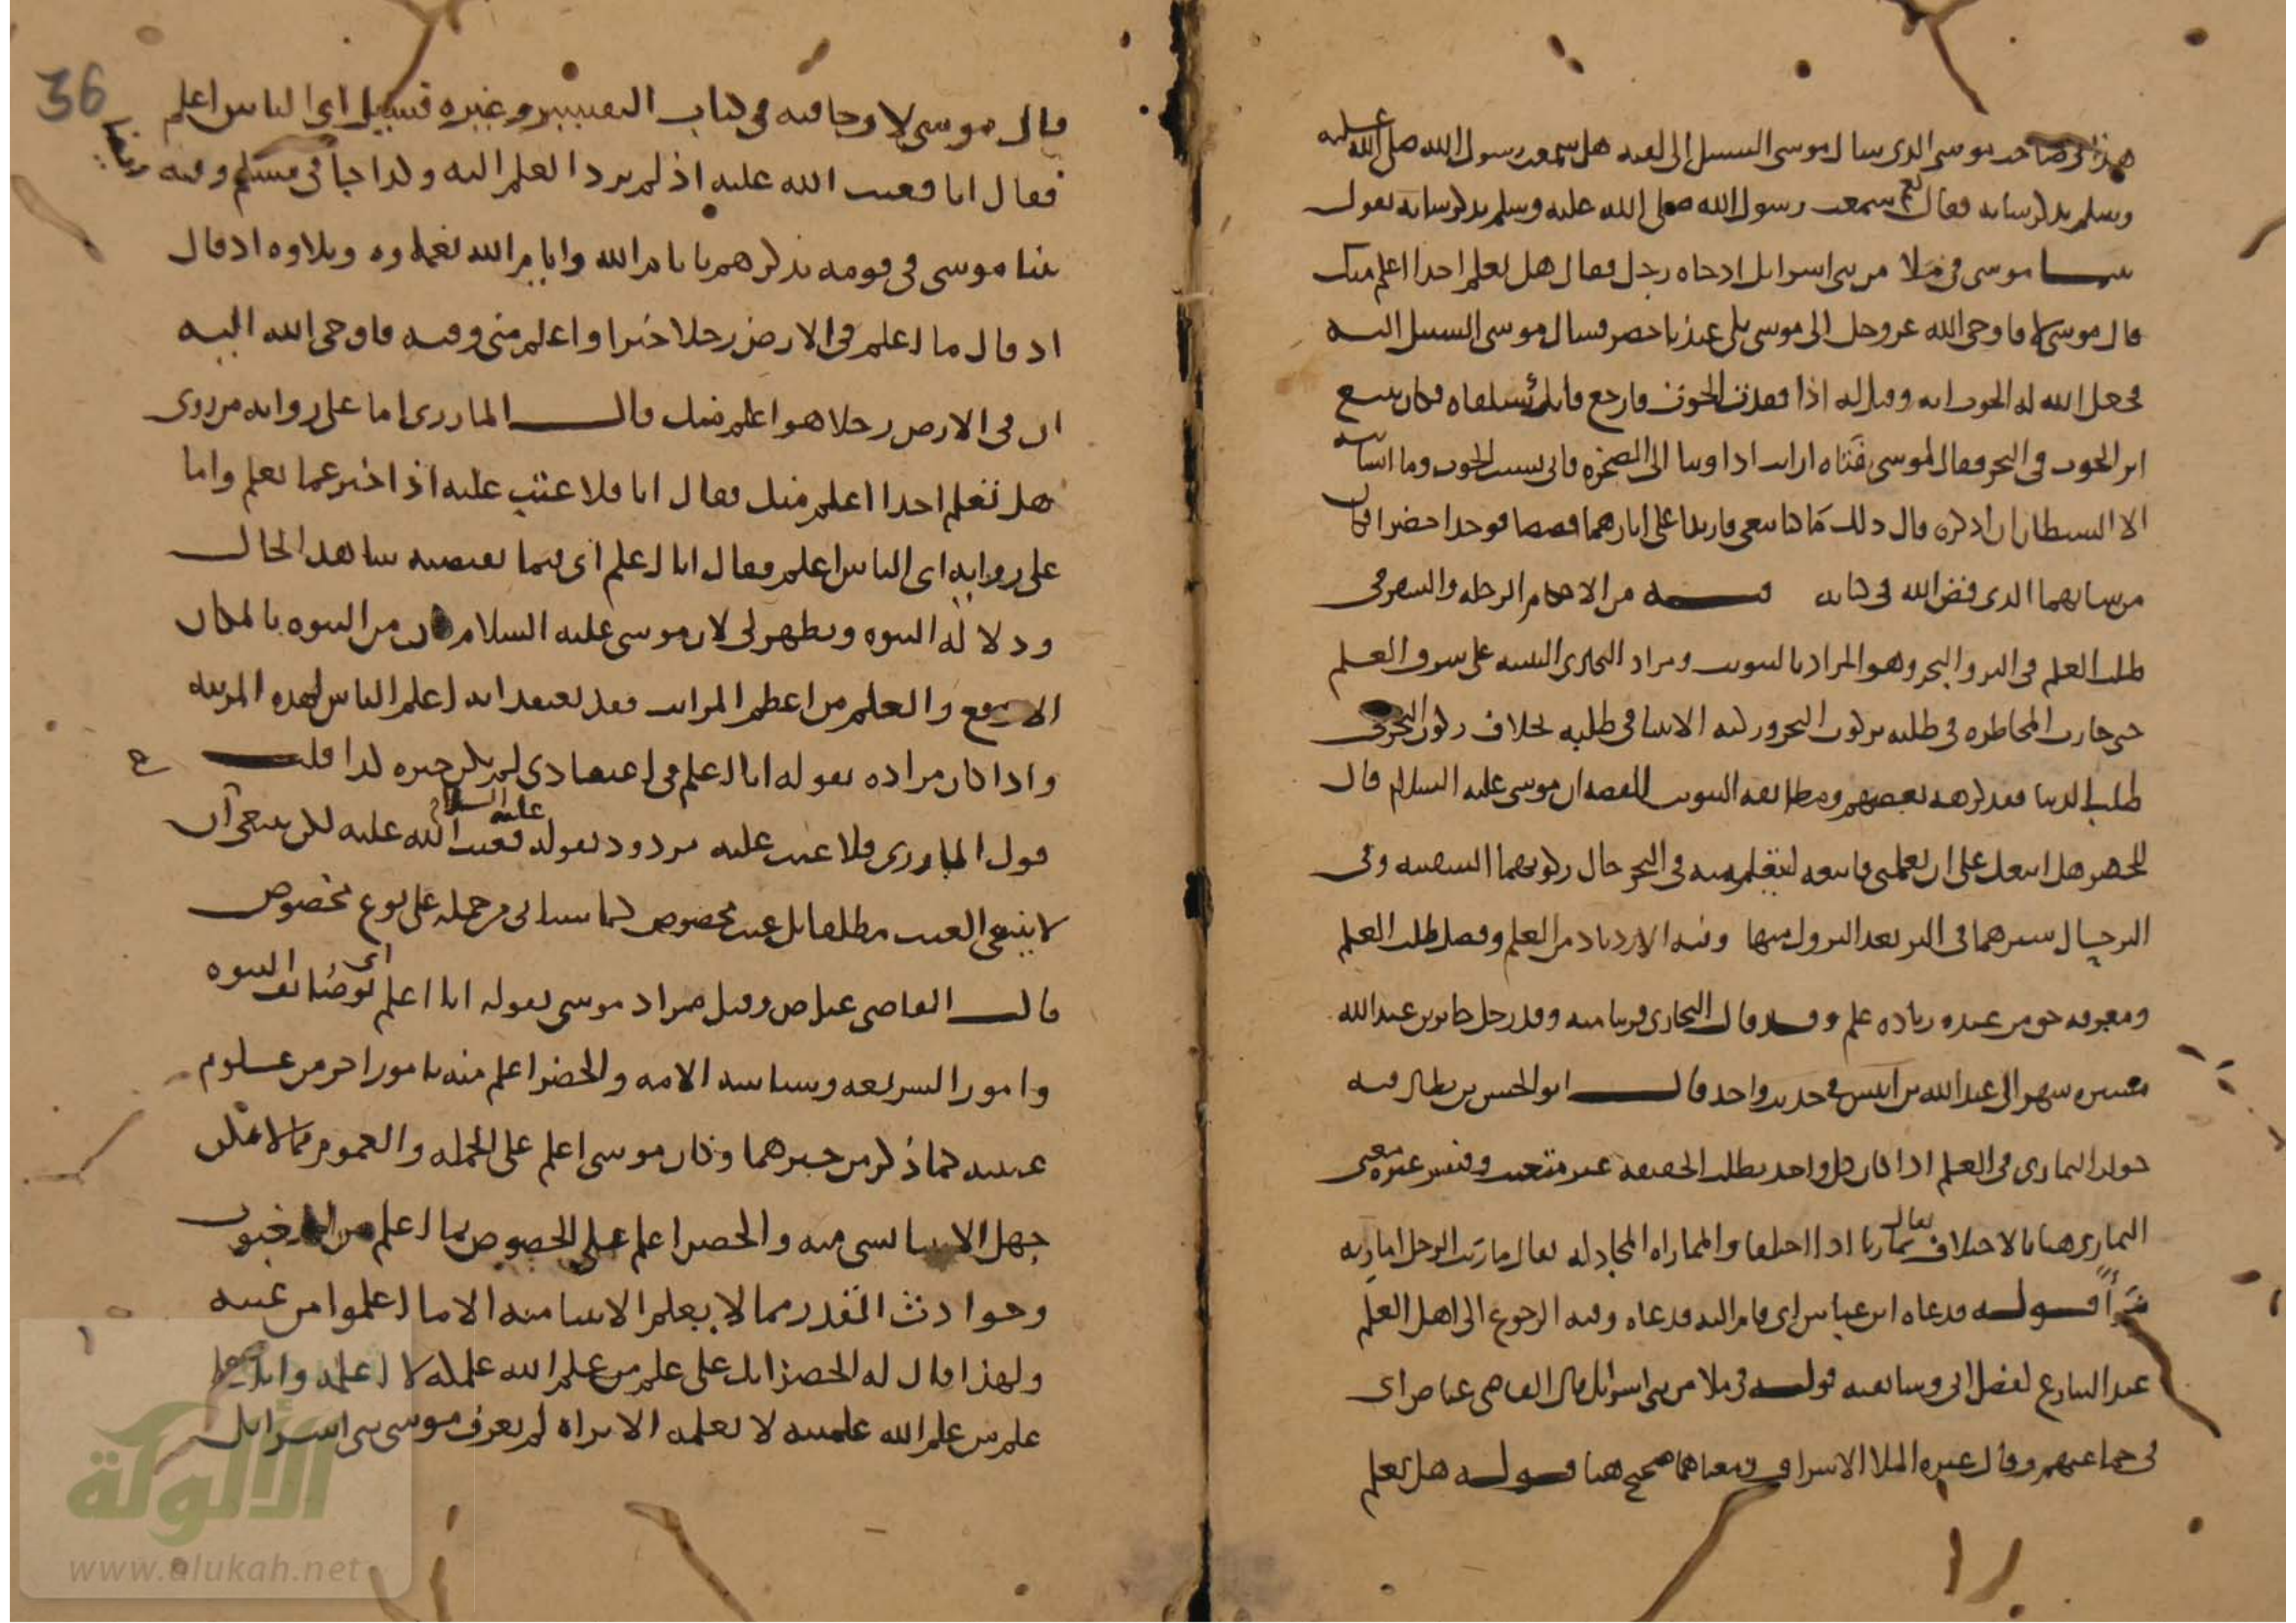 هذا في صاحب موسى الذي سال موسى السبيل الى لقيه هل سمعت رسول الله صلى الله عليه
وسلم يذكر شانه فقال نعم سمعت رسول الله صلى الله عليه وسلم يذكر شانه يقول
بينما موسى في ملا من بني اسرايل اذ جاه رجل فقال هل تعلم احدا اعلم منك
قال موسى لا فاوحى الله عز وجل الى موسى بلى عبدنا خضر فسال موسى السبيل اليه
فجعل الله له الحوت اية وقيل له اذا فقدت الحوت فارجع فانك ستلقاه فكان يتبع
اثر الحوت في البحر فقال لموسى فتاه ارايت اذ اوينا الى الصخرة فاني نسيت الحوت وما انسانيه
الا الشيطان ان اذكره قال ذلك ما كنا نبغي فارتدا على اثارهما قصصا فوجدا خضرا فكان
من شانهما الذي قص الله في كتابه فيه من الاحكام الرحلة والسفر في
طلب العلم في البر والبحر وهو المراد بالتبويب ومراد البخاري التنبيه على شرف العلم
حتى جازت المخاطرة في طلبه بركوب البحر وركبه الانبيا في طلبه بخلاف ركوب البحر في
طلب الدنيا فقد كرهه بعضهم ومطابقة التبويب للقصة ان موسى عليه السلام قال
للخضر هل اتبعك على ان تعلمني فاتبعه ليتعلم منه في البحر حال ركوبهما السفينة وفي
البر حال سيرهما في البر بعد النزول منها وفيه الازدياد من العلم وفضل طلب العلم
ومعرفة حق من عنده زيادة علم وقد قال البخاري قريبا منه وقد رحل جابر بن عبد الله
مسيرة شهر الى عبد الله بن انيس في حديث واحد قال ابو الحسن بن بطال فيه
جواز التماري في العلم اذا كان كل واحد يطلب الحقيقة غير متعنت وفسر غيره معنى
التماري هنا بالاختلاف يقال تماريا اذا اختلفا والمماراة المجادلة يقال ماريت الرجل اماريه
مرا قوله فدعاه ابن عباس اي قام اليه فدعاه وفيه الرجوع الى اهل العلم
عند التنازع لفضل ابي وسابقته قوله في ملا من بني اسرايل قال القاضي عياض اي
في جماعتهم وقال غيره الملا الاشراف ومعناهما صحيح هنا قوله هل تعلم
36
قال موسى لا وجا فيه في كتاب التفسير وغيره فسيل اي الناس اعلم
فقال انا فعتب الله عليه اذ لم يرد العلم اليه ولذا جا في مسلم وفيه ايضا
بينا موسى في قومه يذكرهم بايام الله وايام الله نعماوه وبلاوه اذ قال
اذ قال ما اعلم في الارض رجلا خيرا واعلم مني وفيه فاوحى الله اليه
ان في الارض رجلا هو اعلم منك قال المازري اما على رواية من روى
هل تعلم احدا اعلم منك فقال انا فلا عتب عليه اذ اخبر عما يعلم واما
على رواية اي الناس اعلم فقال انا اعلم اي فيما يقتضيه شاهد الحال
ودلالة النبوة ويظهر لي لان موسى عليه السلام كان من النبوة بالمكان
الارفع والعلم من اعظم المراتب فقد يعتقد انه اعلم الناس لهذه المرتبة
واذا كان مراده بقوله انا اعلم في اعتقادي لم يكن خبره كذبا قلت
قول المازري فلا عتب عليه مردود بقوله عليه السلام فعتب الله عليه لكن ينبغي ان
لا ينتفي العتب مطلقا بل عتب مخصوص كما سياتي من حمله على نوع مخصوص
قال القاضي عياض وقيل مراد موسى بقوله انا اعلم اي بوظائف النبوة
وامور الشريعة وسياسة الامة والخضر اعلم منه بامور اخر من علوم
غيبية كما ذكر من خبرهما وكان موسى اعلم على الجملة والعموم مما لا يمكن
جهل الانبيا بشي منه والخضر اعلم على الخصوص بما اعلم من الغيوب
وحوادث القدر مما لا يعلم الانبيا منه الا ما اعلموا من غيبه
ولهذا قال له الخضر انك على علم من علم الله علمكه لا اعلمه وانا على
علم من علم الله علمنيه لا تعلمه الا تراه لم يعرف موسى بني اسرايل
الألوكة
www.alukah.net